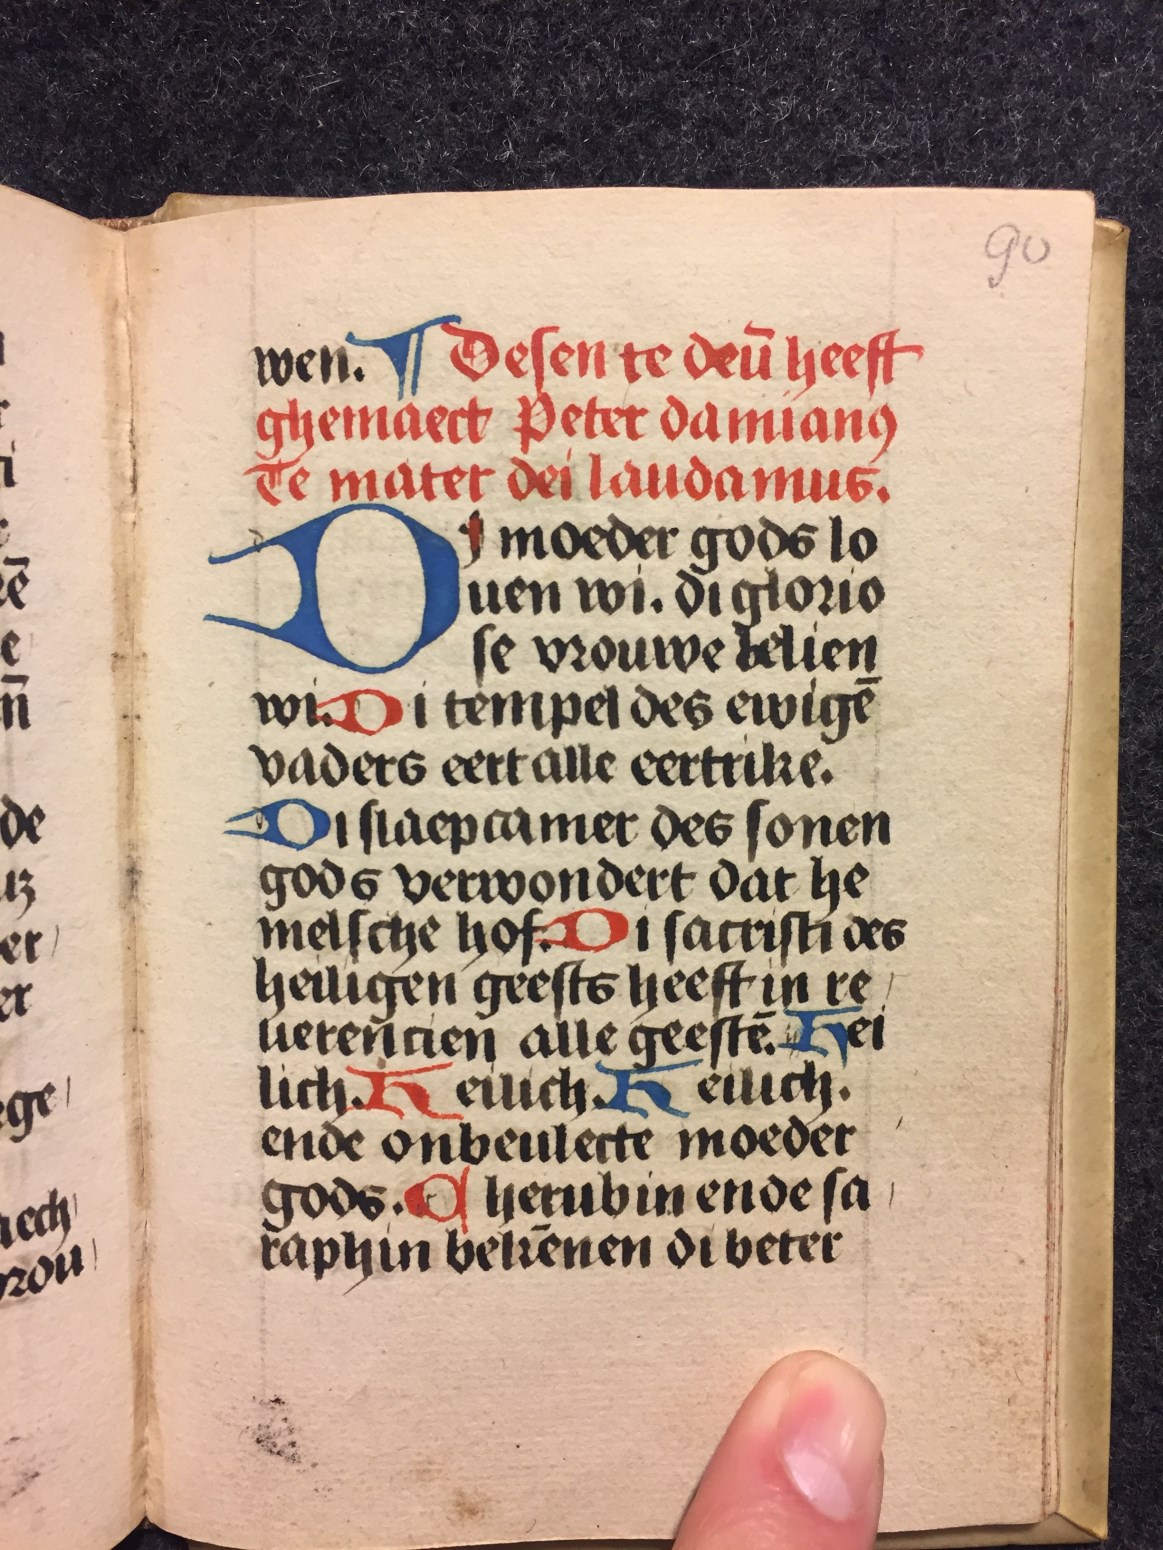 90
wen. ¶ Desen te deū heeft
ghemaect Peter damianꝰ
Te mater dei laudamus.
Dj moeder gods lo
uen wi. di glorio
se vrouwe belien
wi. Di tempel des ewigē
vaders eert alle eertrike.
Di slaepcamer des sonen
gods verwondert dat he
melsche hof. Di sacristi des
heiligen geests heeft in re
uerencien alle geestē. Hei
lich. Heilich. Heilich.
ende onbeulecte moeder
gods. Cherubin ende sa
raphin bekēnen di beter